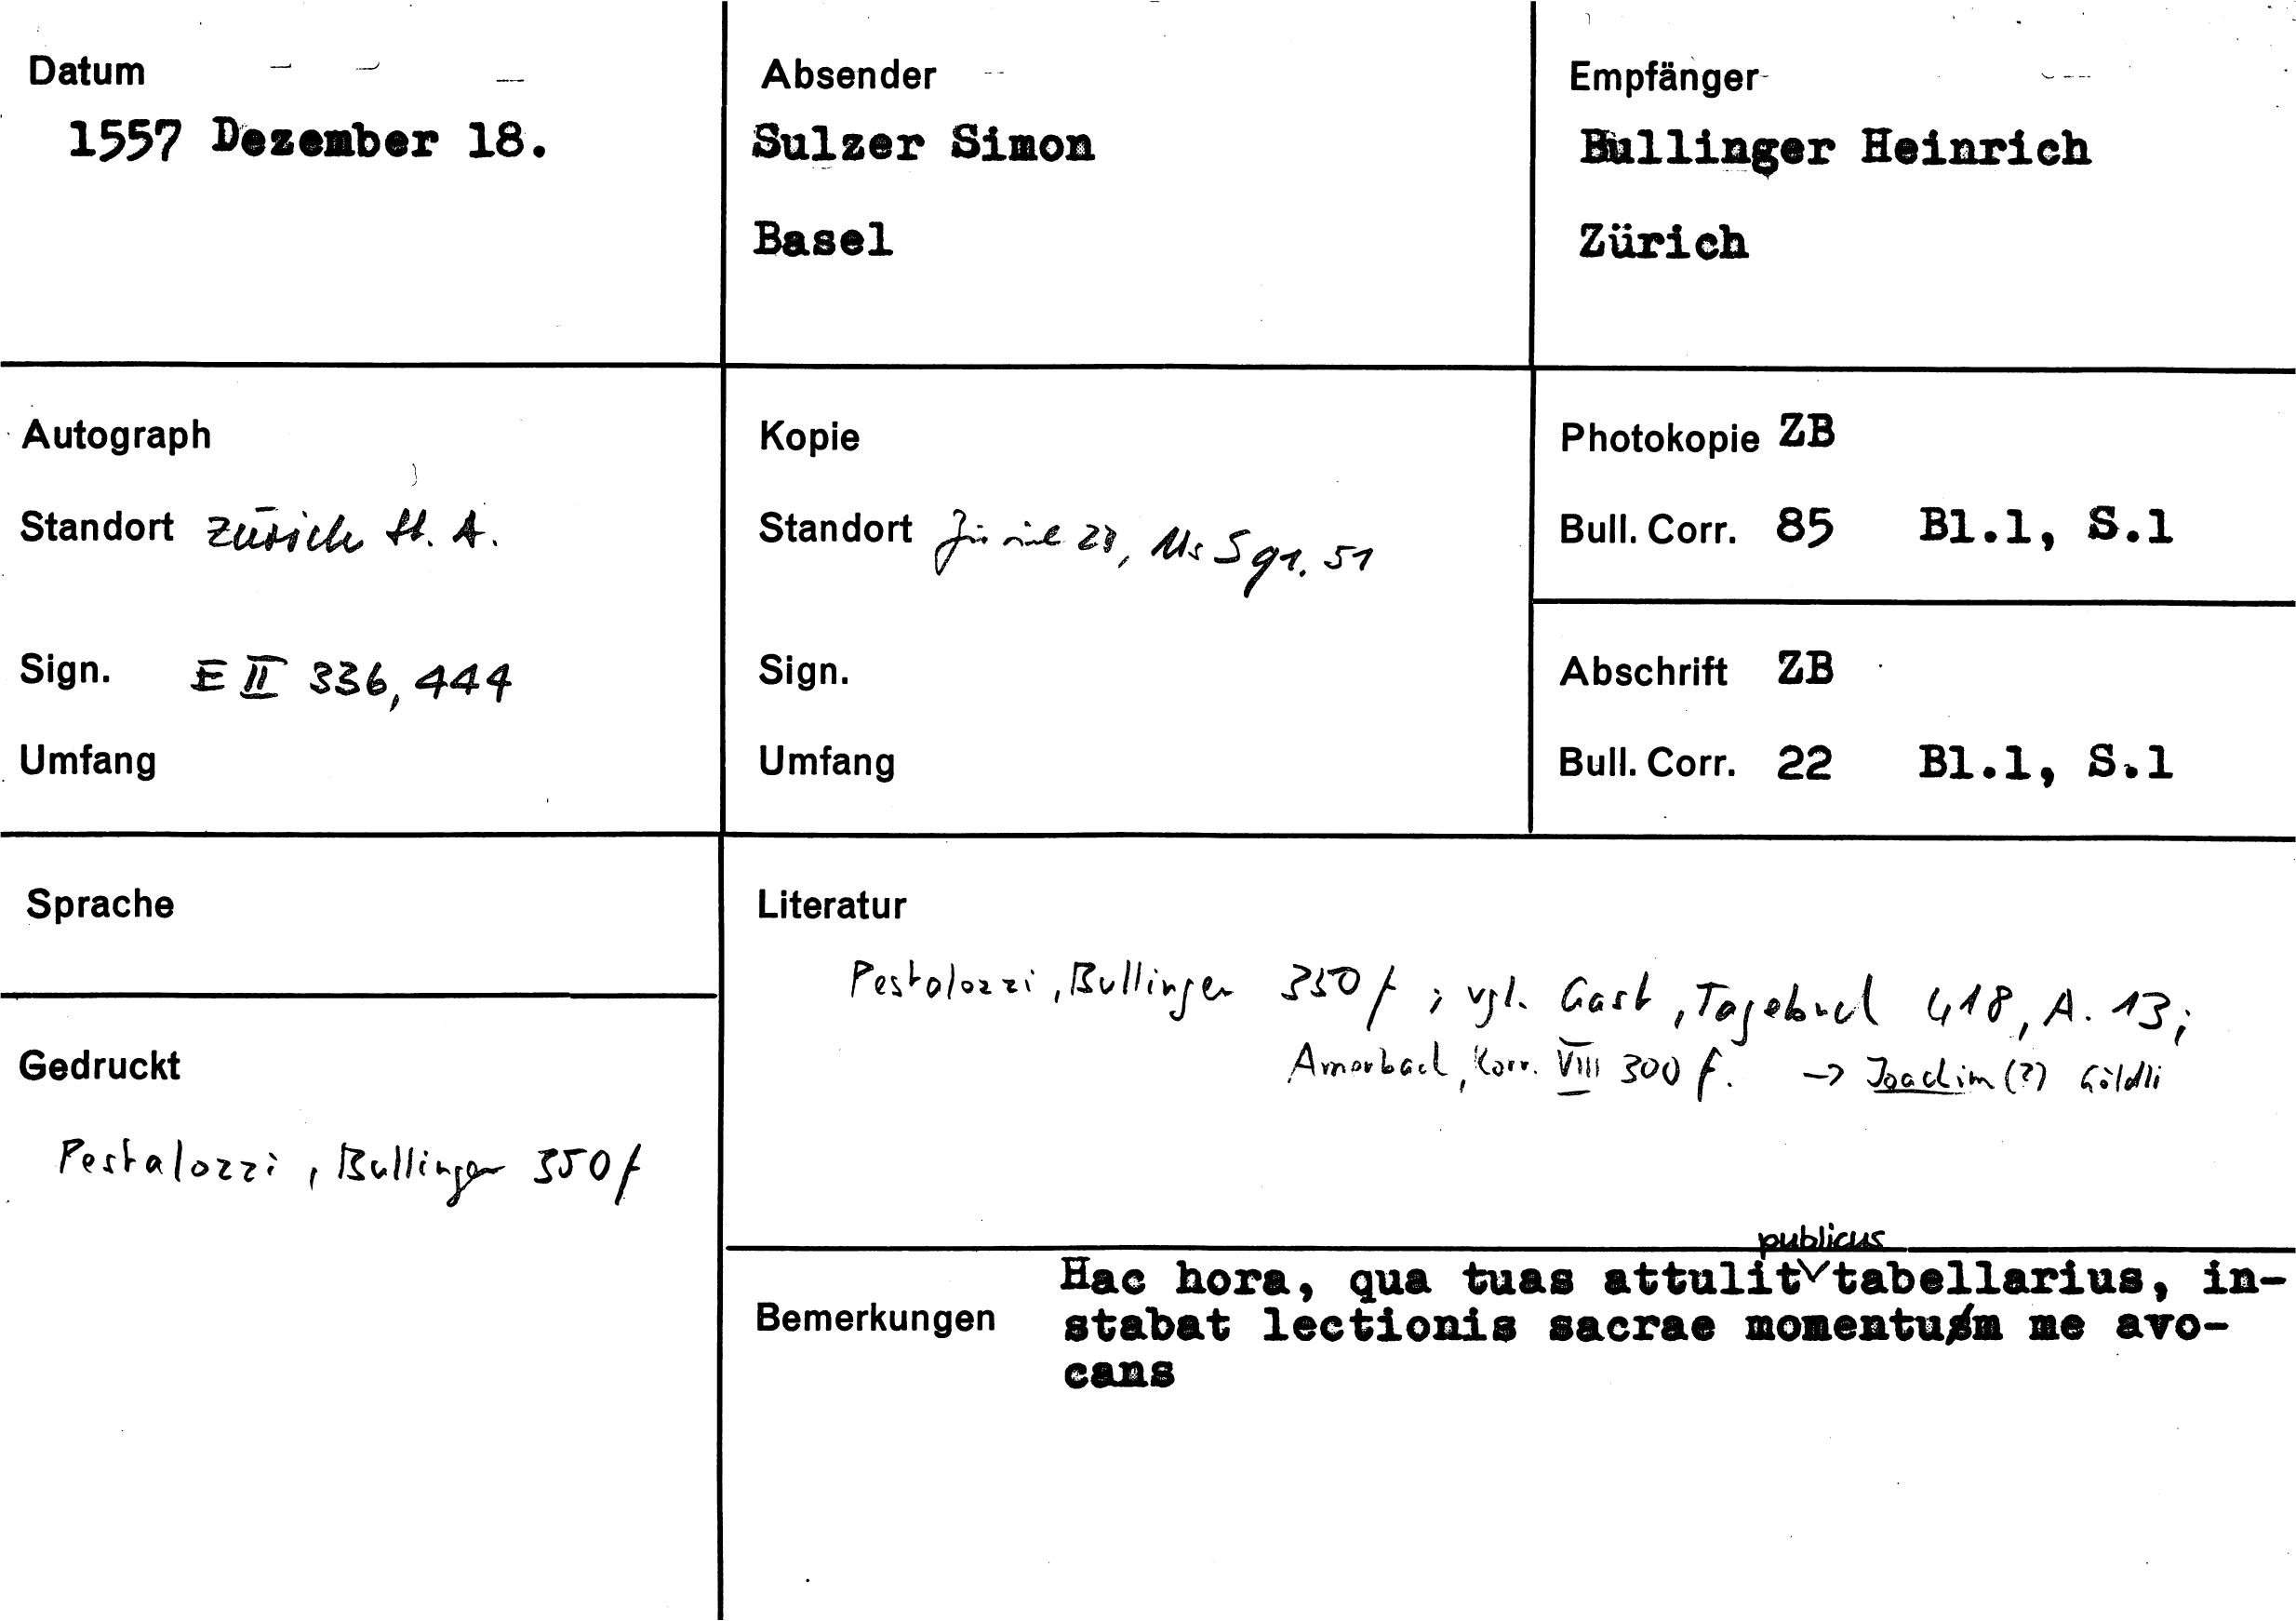 Datum
1557 Dezember 18.
Absender
Sulzer Simon
Basel
Empfänger
Bullinger Heinrich
Zürich
Autograph
Standort Zürich St. A.
Sign. E II 336, 444
Umfang
Kopie
Standort Zürich ZB, Ms S 91. 51
Sign.
Umfang
Photokopie ZB
Bull. Corr. 85 Bl.1, S.1
Abschrift ZB
Bull. Corr. 22 Bl.1, S.1
Sprache
Gedruckt
Pestalozzi, Bullinger 350f
Literatur
Pestalozzi, Bullinger 350f; vgl. Gast, Tagebuch 418, A. 13;
Amerbach, Korr. VIII 300 f. -> Joachim (?) Göldli
Bemerkungen
publicus
Hac hora, qua tuas attulit tabellarius, in-
stabat lectionis sacrae momentum me avo-
cans